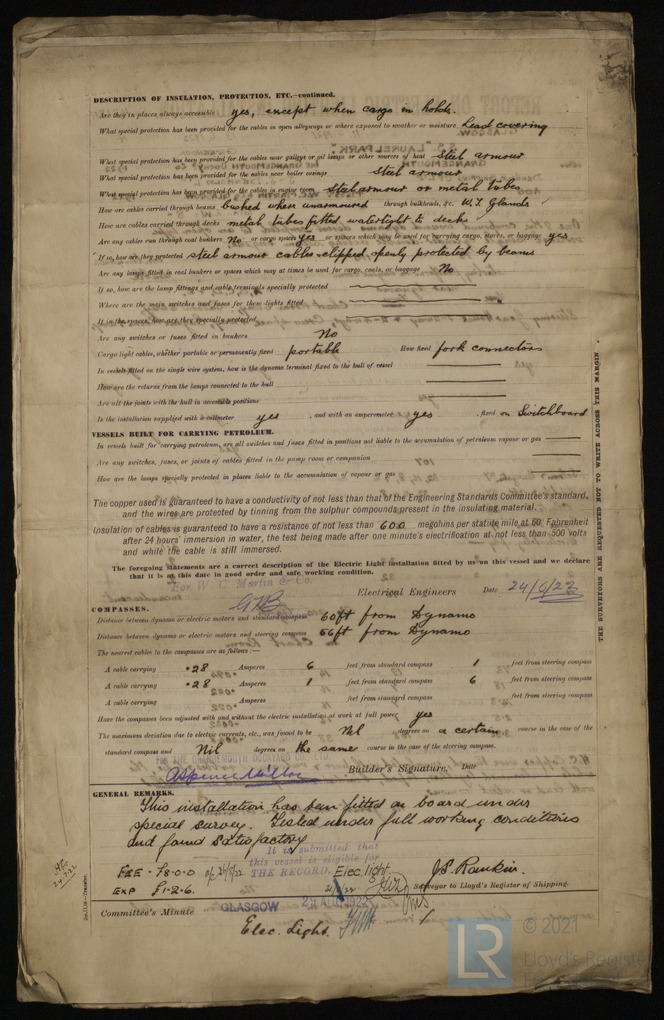 DESCRIPTION OF INSULATION, PROTECTION, ETC.—continued.
Are they in places always accessible yes, except when cargo in holds.
What special protection has been provided for the cables in open alleyways or where exposed to weather or moisture Lead covering
What special protection has been provided for the cables near galleys or oil lamps or other sources of heat steel armour
What special protection has been provided for the cables near boiler casings steel armour
What special protection has been provided for the cables in engine room steel armour or metal tubes
How are cables carried through beams bushed when unarmoured through bulkheads, &c. W.T. Glands
How are cables carried through decks metal tubes fitted watertight to decks
Are any cables run through coal bunkers No or cargo spaces yes or spaces which may be used for carrying cargo, stores, or baggage yes
If so, how are they protected steel armour cables clipped, openly protected by beams
Are any lamps fitted in coal bunkers or spaces which may at times be used for cargo, coals, or baggage No
If so, how are the lamp fittings and cable terminals specially protected
Where are the main switches and fuses for these lights fitted
If in the spaces, how are they specially protected
Are any switches or fuses fitted in bunkers No
Cargo light cables, whether portable or permanently fixed portable How fixed fork connectors
In vessels fitted on the single wire system, how is the dynamo terminal fixed to the hull of vessel
How are the returns from the lamps connected to the hull
Are all the joints with the hull in accessible positions
Is the installation supplied with a voltmeter yes , and with an amperemeter yes , fixed on Switchboard
VESSELS BUILT FOR CARRYING PETROLEUM.
In vessels built for carrying petroleum, are all switches and fuses fitted in positions not liable to the accumulation of petroleum vapour or gas
Are any switches, fuses, or joints of cables fitted in the pump room or companion
How are the lamps specially protected in places liable to the accumulation of vapour or gas
The copper used is guaranteed to have a conductivity of not less than that of the Engineering Standards Committee's standard,
and the wires are protected by tinning from the sulphur compounds present in the insulating material.
Insulation of cables is guaranteed to have a resistance of not less than 600 megohms per statute mile at 60° Fahrenheit
after 24 hours' immersion in water, the test being made after one minute's electrification at not less than 500 volts
and while the cable is still immersed.
The foregoing statements are a correct description of the Electric Light installation fitted by us on this vessel and we declare
that it is at this date in good order and safe working condition.
For W. C. Martin & Co.
Electrical Engineers Date 24/6/22
COMPASSES.
Distance between dynamo or electric motors and standard compass 60ft from Dynamo
Distance between dynamo or electric motors and steering compass 56ft from Dynamo
The nearest cables to the compasses are as follows:—
A cable carrying .28 Amperes 6 feet from standard compass 1 feet from steering compass
A cable carrying .28 Amperes 1 feet from standard compass 6 feet from steering compass
A cable carrying Amperes feet from standard compass feet from steering compass
Have the compasses been adjusted with and without the electric installation at work at full power yes
The maximum deviation due to electric currents, etc., was found to be Nil degrees on a certain course in the case of the
standard compass and Nil degrees on the same course in the case of the steering compass.
FOR THE GRANGEMOUTH DOCKYARD CO. LTD.
Builder's Signature. Date
GENERAL REMARKS.
This installation has been fitted on board under
special survey. Tested under full working conditions
and found satisfactory
It is submitted that
this vessel is eligible for
THE RECORD. Elec. light.
FEE - £8.0.0
EXP £1.2.6.
J.S. Rankin.
Surveyor to Lloyd's Register of Shipping.
Committee's Minute GLASGOW
Elec. Light.
THE SURVEYORS ARE REQUESTED NOT TO WRITE ACROSS THIS MARGIN.
LR
© 2021
Lloyd's Register